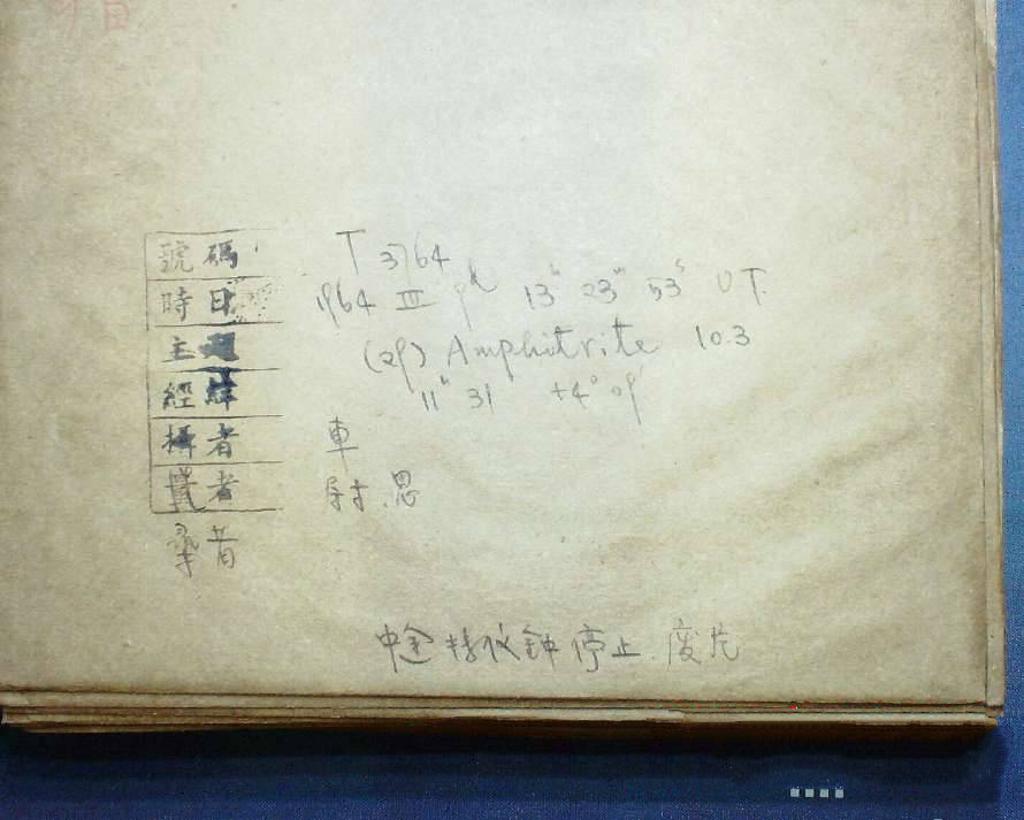 號碼 T 3764
時日 1964 III 9ᵈ 13ʰ 23ᵐ 53ˢ UT.
主 (29) Amphitrite 10.3
經緯 11ʰ 31 +4° 09'
攝者 車
者 尉 思
者
中途 转仪钟 停止. 废片